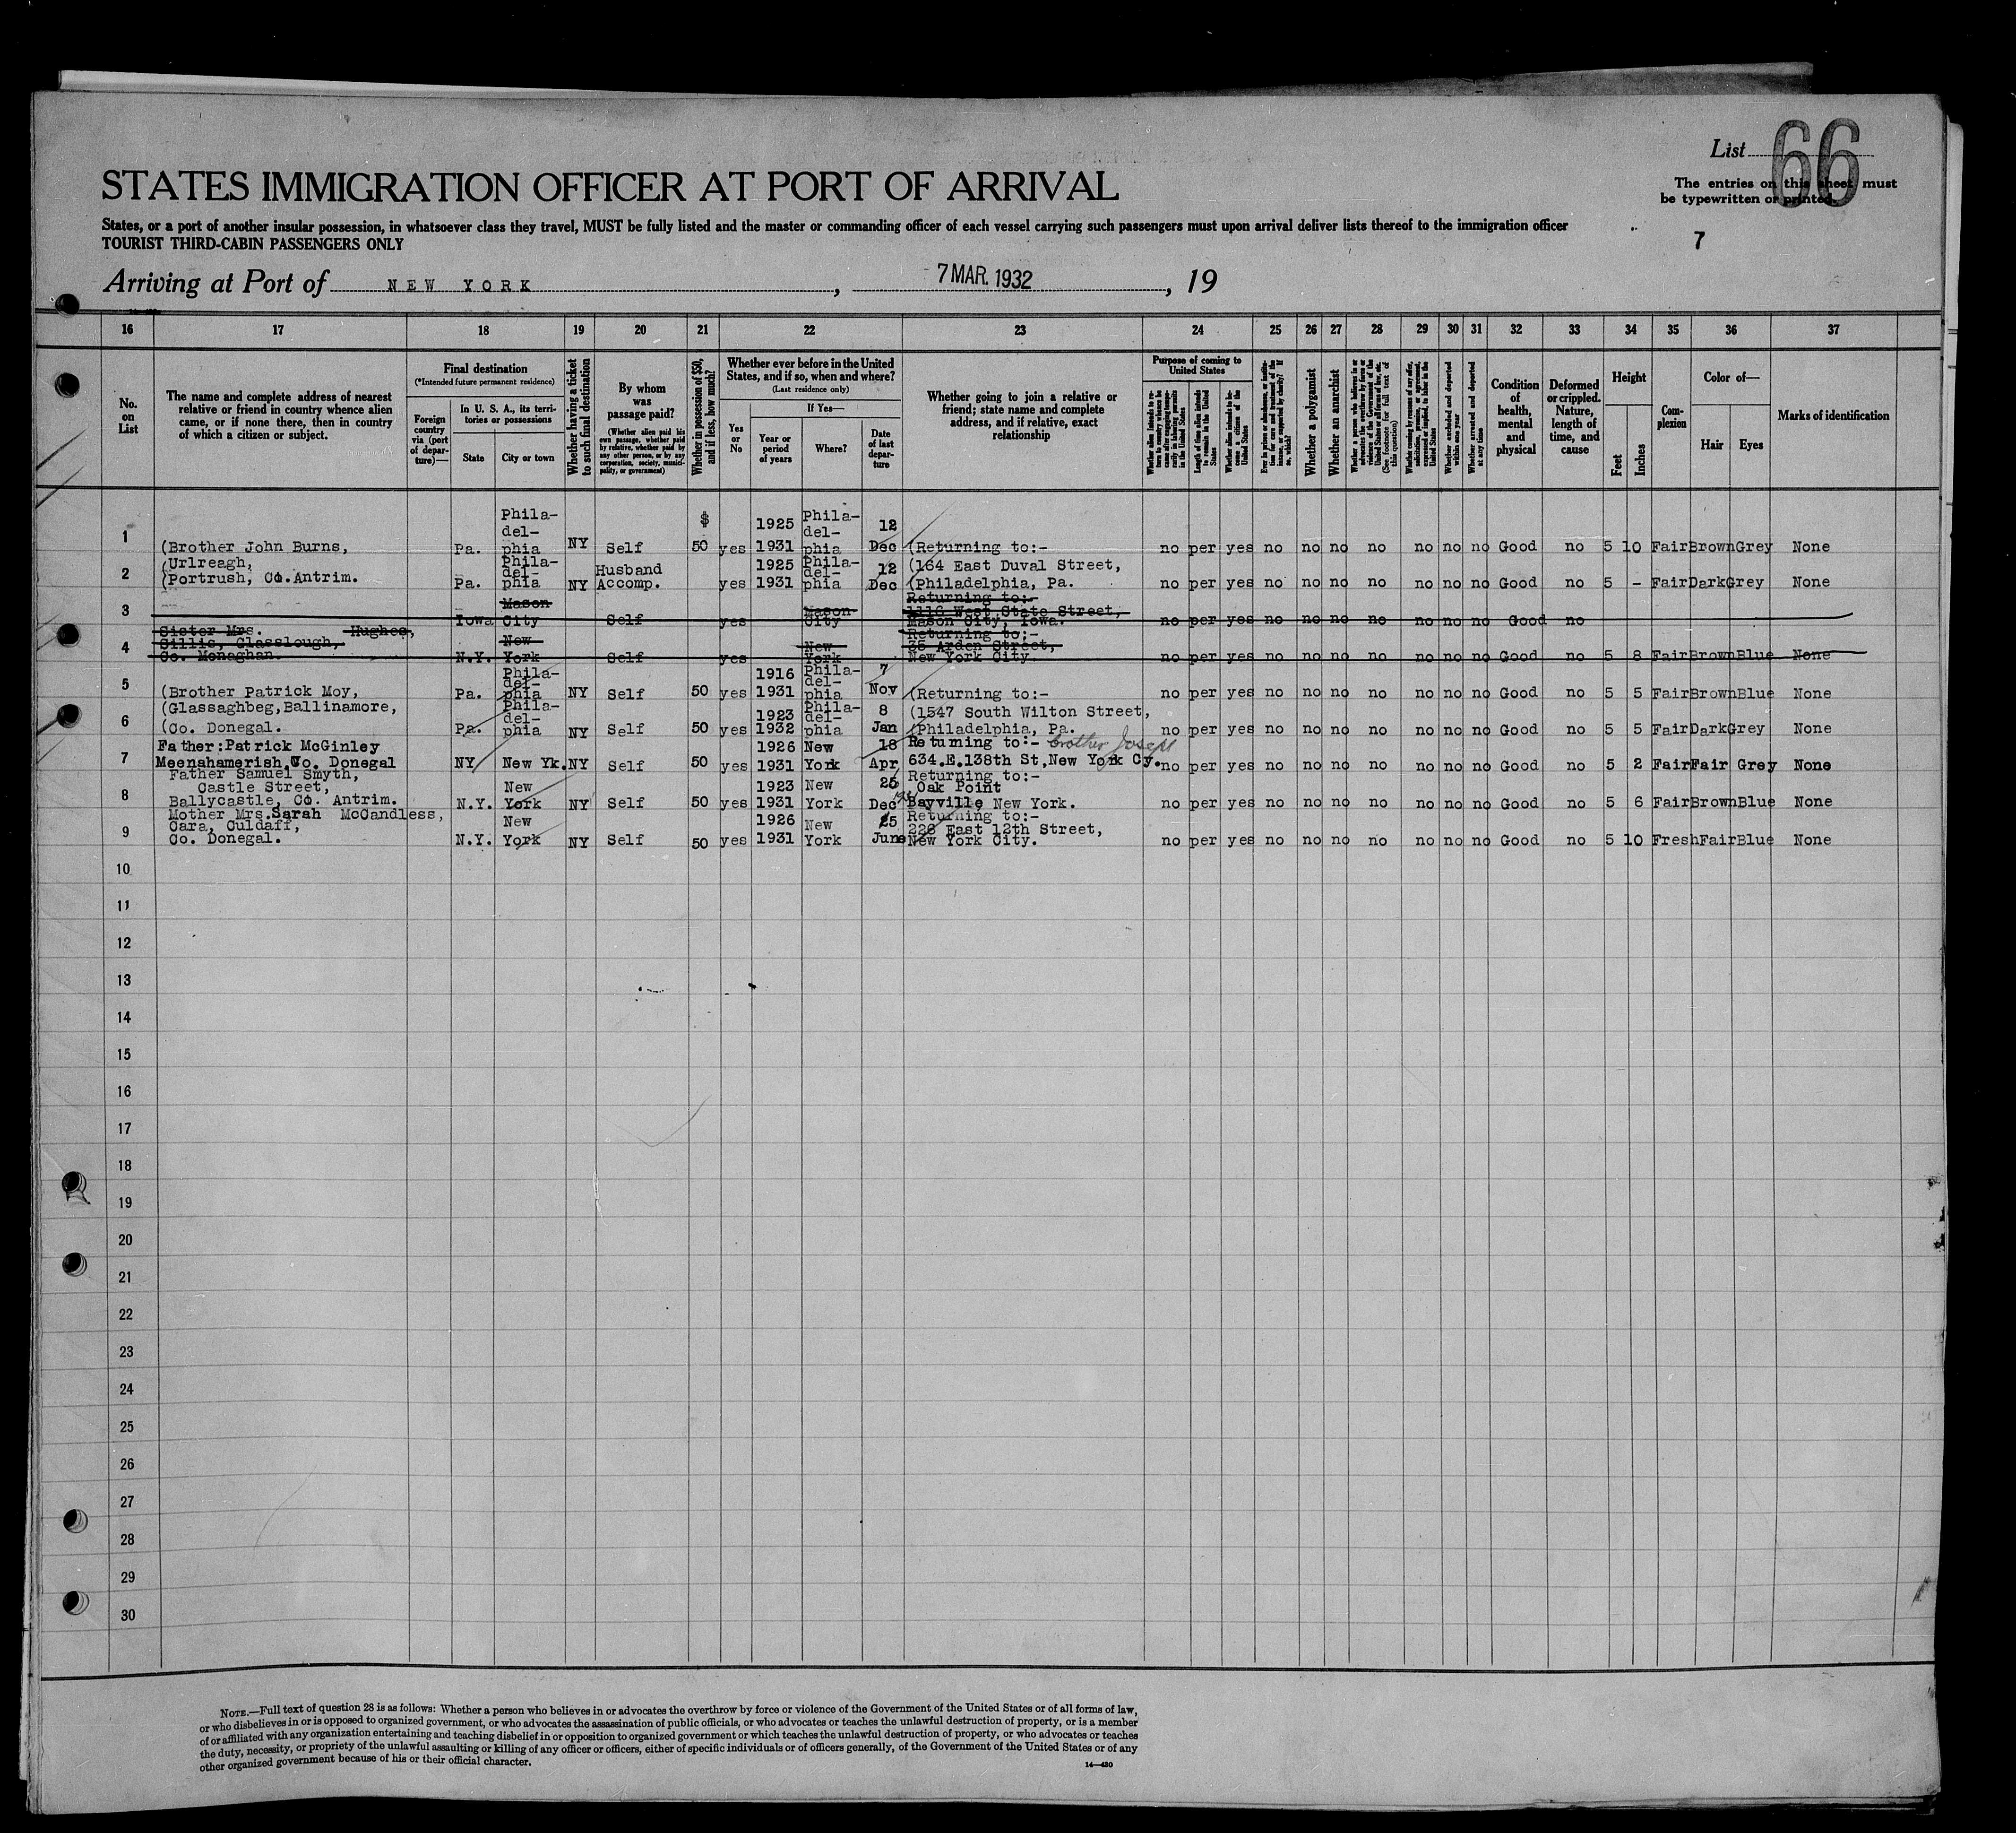 List 66
STATES IMMIGRATION OFFICER AT PORT OF ARRIVAL
The entries on this sheet must
be typewritten or printed.
States, or a port of another insular possession, in whatsoever class they travel, MUST be fully listed and the master or commanding officer of each vessel carrying such passengers must upon arrival deliver lists thereof to the immigration officer
TOURIST THIRD-CABIN PASSENGERS ONLY
7
Arriving at Port of NEW YORK, 7 MAR. 1932, 19
16 17 18 19 20 21 22 23 24 25 26 27 28 29 30 31 32 33 34 35 36 37
No. on List
The name and complete address of nearest relative or friend in country whence alien came, or if none there, then in country of which a citizen or subject.
Final destination
(*Intended future permanent residence)
Foreign country via (port of departure)—
In U. S. A., its territories or possessions
State
City or town
Whether having a ticket to such final destination
By whom was passage paid?
(Whether alien paid his own passage, whether paid by relative, whether paid by any other person, or by any corporation, society, municipality, or government)
Whether in possession of $50, and if less, how much?
Whether ever before in the United States, and if so, when and where?
(Last residence only)
Yes or No
If Yes—
Year or period of years
Where?
Date of last departure
Whether going to join a relative or friend; state name and complete address, and if relative, exact relationship
Purpose of coming to United States
Length of time alien intends to remain in the United States
Whether alien intends to become a citizen of the United States
Whether a polygamist
Whether an anarchist
(See footnote for full text of this question)
Whether excluded and deported within one year
Whether arrested and deported at any time
Condition of health, mental and physical
Deformed or crippled. Nature, length of time, and cause
Height
Feet
Inches
Complexion
Color of—
Hair
Eyes
Marks of identification
1 (Brother John Burns, Pa. Phila-del-phia NY Self $ 50 yes 1925 1931 Phila-del-phia 12 Dec (Returning to:- no per yes no no no no no no no Good no 5 10 Fair Brown Grey None
2 (Urlreagh, (Portrush, Co. Antrim. Pa. Phila-del-phia NY Husband Accomp. yes 1925 1931 Phila-del-phia 12 Dec (164 East Duval Street, (Philadelphia, Pa. no per yes no no no no no no no Good no 5 - Fair Dark Grey None
3 Iowa Mason City Self yes Mason City Returning to:- 1116 West State Street, Mason City, Iowa. no per yes no no no no no no no Good no
4 Sister Mrs. Hughes, Sillis, Glasslough, Co. Monaghan. N.Y. New York Self yes New York Returning to:- 35 Arden Street, New York City. no per yes no no no no no no no Good no 5 8 Fair Brown Blue None
5 (Brother Patrick Moy, Pa. Phila-del-phia NY Self 50 yes 1916 1931 Phila-del-phia 7 Nov (Returning to:- no per yes no no no no no no no Good no 5 5 Fair Brown Blue None
6 (Glassaghbeg, Ballinamore, (Co. Donegal. Pa. Phila-del-phia NY Self 50 yes 1923 1932 Phila-del-phia 8 Jan (1547 South Wilton Street, (Philadelphia, Pa. no per yes no no no no no no no Good no 5 5 Fair Dark Grey None
7 Father:Patrick McGinley Meenahamerish. Co. Donegal NY New Yk. NY Self 50 yes 1926 1931 New York 18 Apr Returning to:- brother Joseph 634.E.138th St,New York Cy. no per yes no no no no no no no Good no 5 2 Fair Fair Grey None
8 Father Samuel Smyth, Castle Street, Ballycastle, Co. Antrim. N.Y. New York NY Self 50 yes 1923 1931 New York Dec Returning to:- Oak Point Bayville New York. no per yes no no no no no no no Good no 5 6 Fair Brown Blue None
9 Mother Mrs.Sarah McCandless, Cara, Culdaff, Co. Donegal. N.Y. New York NY Self 50 yes 1926 1931 New York June Returning to:- 228 East 12th Street, New York City. no per yes no no no no no no no Good no 5 10 Fresh Fair Blue None
10
11
12
13
14
15
16
17
18
19
20
21
22
23
24
25
26
27
28
29
30
NOTE.—Full text of question 28 is as follows: Whether a person who believes in or advocates the overthrow by force or violence of the Government of the United States or of all forms of law,
or who disbelieves in or is opposed to organized government, or who advocates the assassination of public officials, or who advocates or teaches the unlawful destruction of property, or is a member
of or affiliated with any organization entertaining and teaching disbelief in or opposition to organized government or which teaches the unlawful destruction of property, or who advocates or teaches
the duty, necessity, or propriety of the unlawful assaulting or killing of any officer or officers, either of specific individuals or of officers generally, of the Government of the United States or of any
other organized government because of his or their official character.
14—430